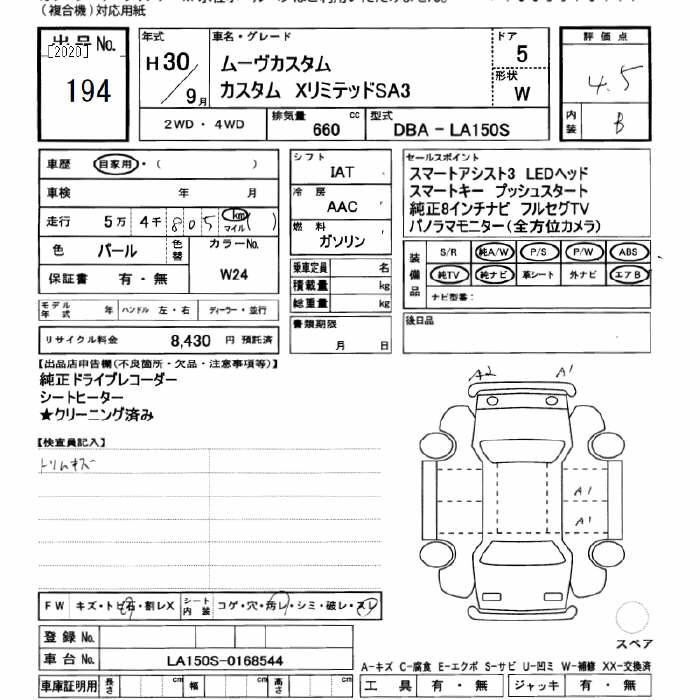 (複合機)対応用紙
出品No.
[2020]
194
年式
H30
9月
車名・グレード
ムーヴカスタム
カスタム XリミテッドSA3
ドア
5
形状
W
評価点
4.5
内装
B
2WD・4WD
排気量
660
cc
型式
DBA-LA150S
車歴 自家用・( )
車検 年 月
走行 5万 4千 805 km マイル ( )
色 パール
色替
カラーNo.
W24
保証書 有・無
モデル年式 年 ハンドル 左・右 ディーラー・並行
リサイクル料金 8,430 円 預託済
シフト
IAT
冷房
AAC
燃料
ガソリン
乗車定員 名
積載量 kg
総重量 kg
書類期限
月 日
セールスポイント
スマートアシスト3 LEDヘッド
スマートキー プッシュスタート
純正8インチナビ フルセグTV
パノラマモニター(全方位カメラ)
装備品
S/R 純A/W P/S P/W ABS
純TV 純ナビ 革シート 外ナビ エアB
ナビ型番:
後日品
【出品店申告欄(不良箇所・欠品・注意事項等)】
純正ドライブレコーダー
シートヒーター
★クリーニング済み
【検査員記入】
トリムキズ
A2 A1
A1
A1
スペア
FW キズ・トビ石・割レX
シート内装 コゲ・穴・汚レ・シミ・破レ・スレ
登録No.
車台No. LA150S-0168544
車庫証明用 長さ cm 幅 cm 高さ cm
A-キズ C-腐食 E-エクボ S-サビ U-凹ミ W-補修 XX-交換済
工具 有・無 ジャッキ 有・無